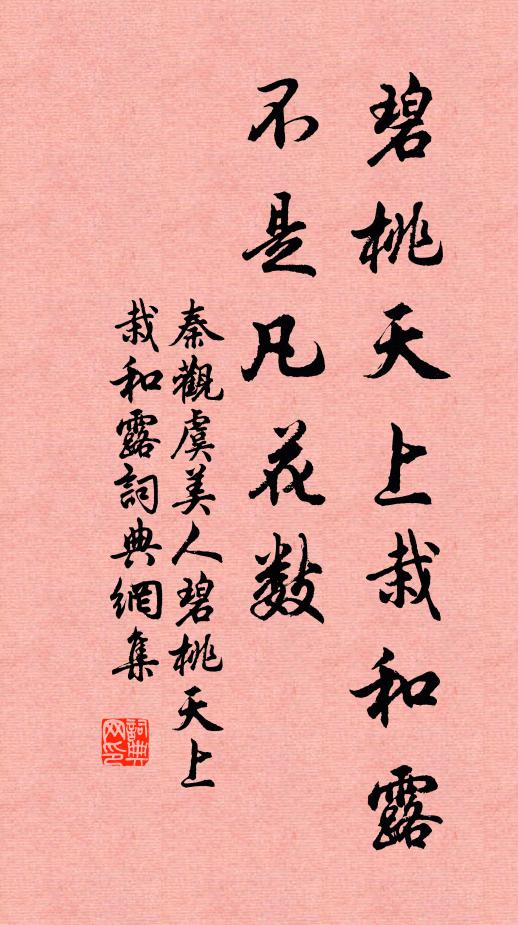 碧桃天上栽和露
不是凡花数
秦觀虞美人碧桃天上
栽和露詞典網集
詞典網印